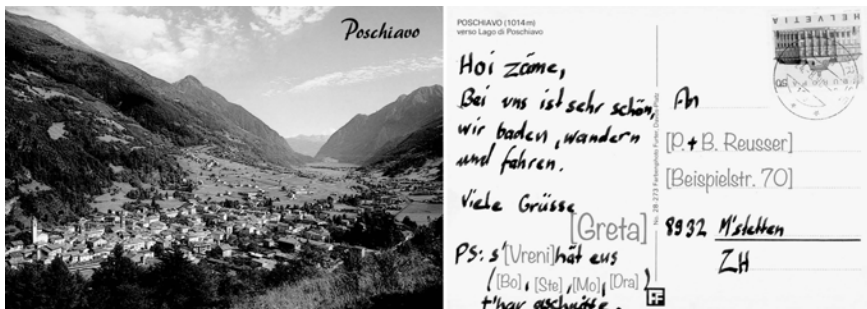 Poschiavo
POSCHIAVO (1014 m)
verso Lago di Poschiavo
Hoi zäme,
Bei uns ist sehr schön,
wir baden, wandern
und fahren.
Viele Grüsse
[Greta]
PS: s'[Vreni] hät eus
([Bo], [Ste], [Mo], [Dra])
t'haar gschnitte.
HELVETIA
An
[P. + B. Reusser]
[Beispielstr. 70]
8932 M'stetten
ZH